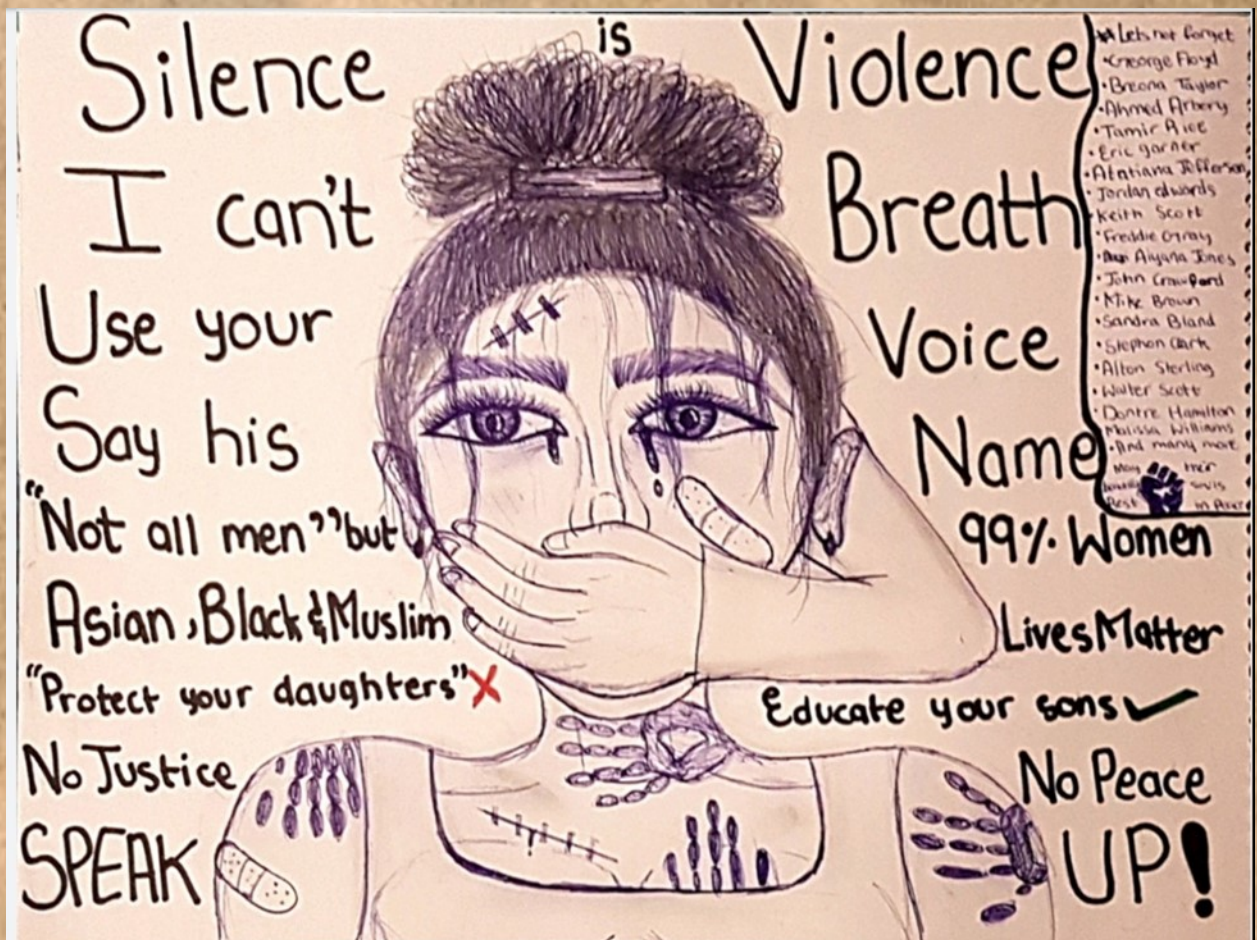 Silence is Violence
I can't Breath
Use your Voice
Say his Name
"Not all men" but 99% Women
Asian, Black & Muslim Lives Matter
"Protect your daughters" X Educate your sons ✓
No Justice No Peace
SPEAK UP!
Lets not forget
• George Floyd
• Breona Taylor
• Ahmed Arbery
• Tamir Rice
• Eric garner
• Atatiana Jefferson
• Jordan edwards
• Keith Scott
• Freddie Gray
• Aiyana Jones
• John Crawford
• Mike Brown
• Sandra Bland
• Stephon Clark
• Alton Sterling
• Walter Scott
• Dontre Hamilton
Malissa Williams
• And many more
May their
souls
Rest in Peace